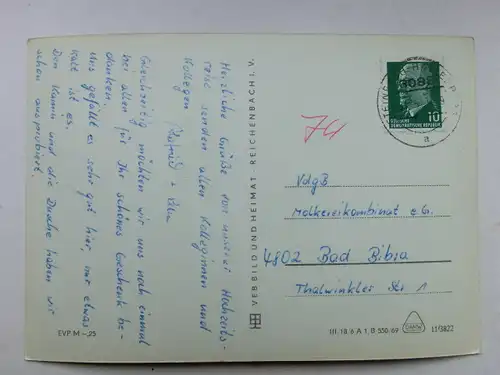 Herzliche Grüße von unserer Hochzeits-
reise senden allen Kolleginnen und
Kollegen
Gleichzeitig möchten wir uns noch einmal
bei allen für Ihr schönes Geschenk be-
danken.
Uns gefällt es sehr gut hier, nur etwas
kalt ist es.
Den Kamin und die Dusche haben wir
schon ausprobiert.
EVP M –,25
VEB BILD UND HEIMAT REICHENBACH I. V.
DEUTSCHE
DEMOKRATISCHE REPUBLIK
10
a
VdgB
Molkereikombinat e.G.
4802 Bad Bibra
Thalwinkler Str 1
III/18/6 A 1 B 550/69